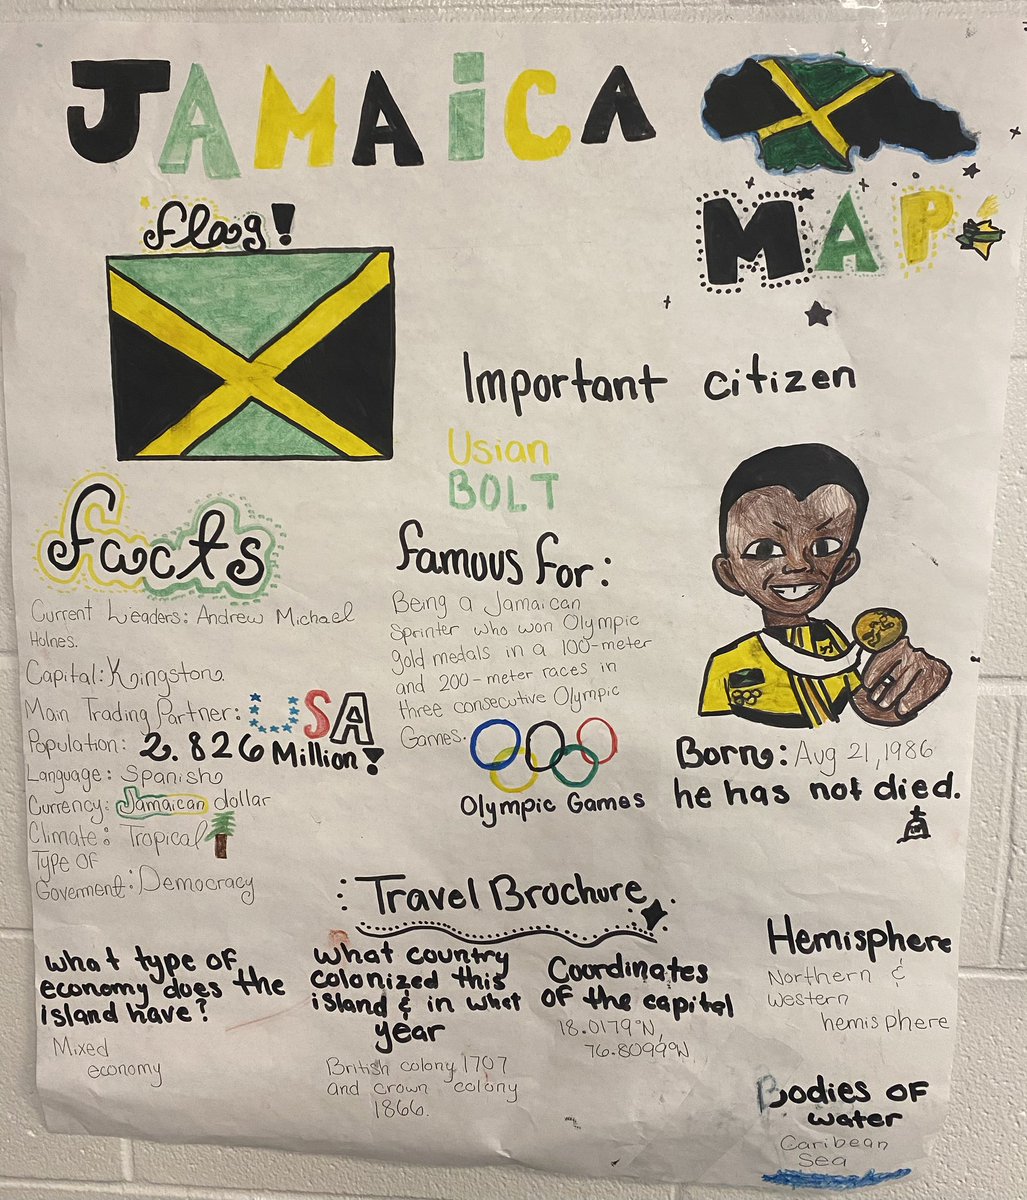 JAMAiCA
MAP
flag!
Important citizen
Usian
BOLT
facts
Current Leaders: Andrew Michael
Holnes.
Capital: Kingston
Main Trading Partner: USA
Population: 2.826 Million!
Language: Spanish
Currency: Jamaican dollar
Climate: Tropical
Type Of
Goverment: Democracy
famous for:
Being a Jamaican
Sprinter who won Olympic
gold medals in a 100-meter
and 200-meter races in
three consecutive Olympic
Games.
Olympic Games
Born: Aug 21, 1986
he has not died.
Travel Brochure
what type of
economy does the
island have?
Mixed
economy
What country
colonized this
island & in what
year
British colony 1707
and crown colony
1866.
Coordinates
of the capitol
18.0179°N,
76.8099°W
Hemisphere
Northern &
western
hemisphere
Bodies of
water
Caribean
Sea